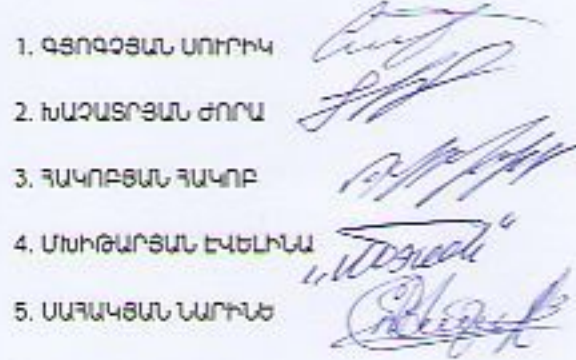 1. ԳՅՈԳՉՅԱՆ ՍՈՒՐԻԿ
2. ԽԱՉԱՏՐՅԱՆ ԺՈՐԱ
3. ՀԱԿՈԲՅԱՆ ՀԱԿՈԲ
4. ՄԽԻԹԱՐՅԱՆ ԷՎԵԼԻՆԱ
5. ՍԱՀԱԿՅԱՆ ՆԱՐԻՆԵ